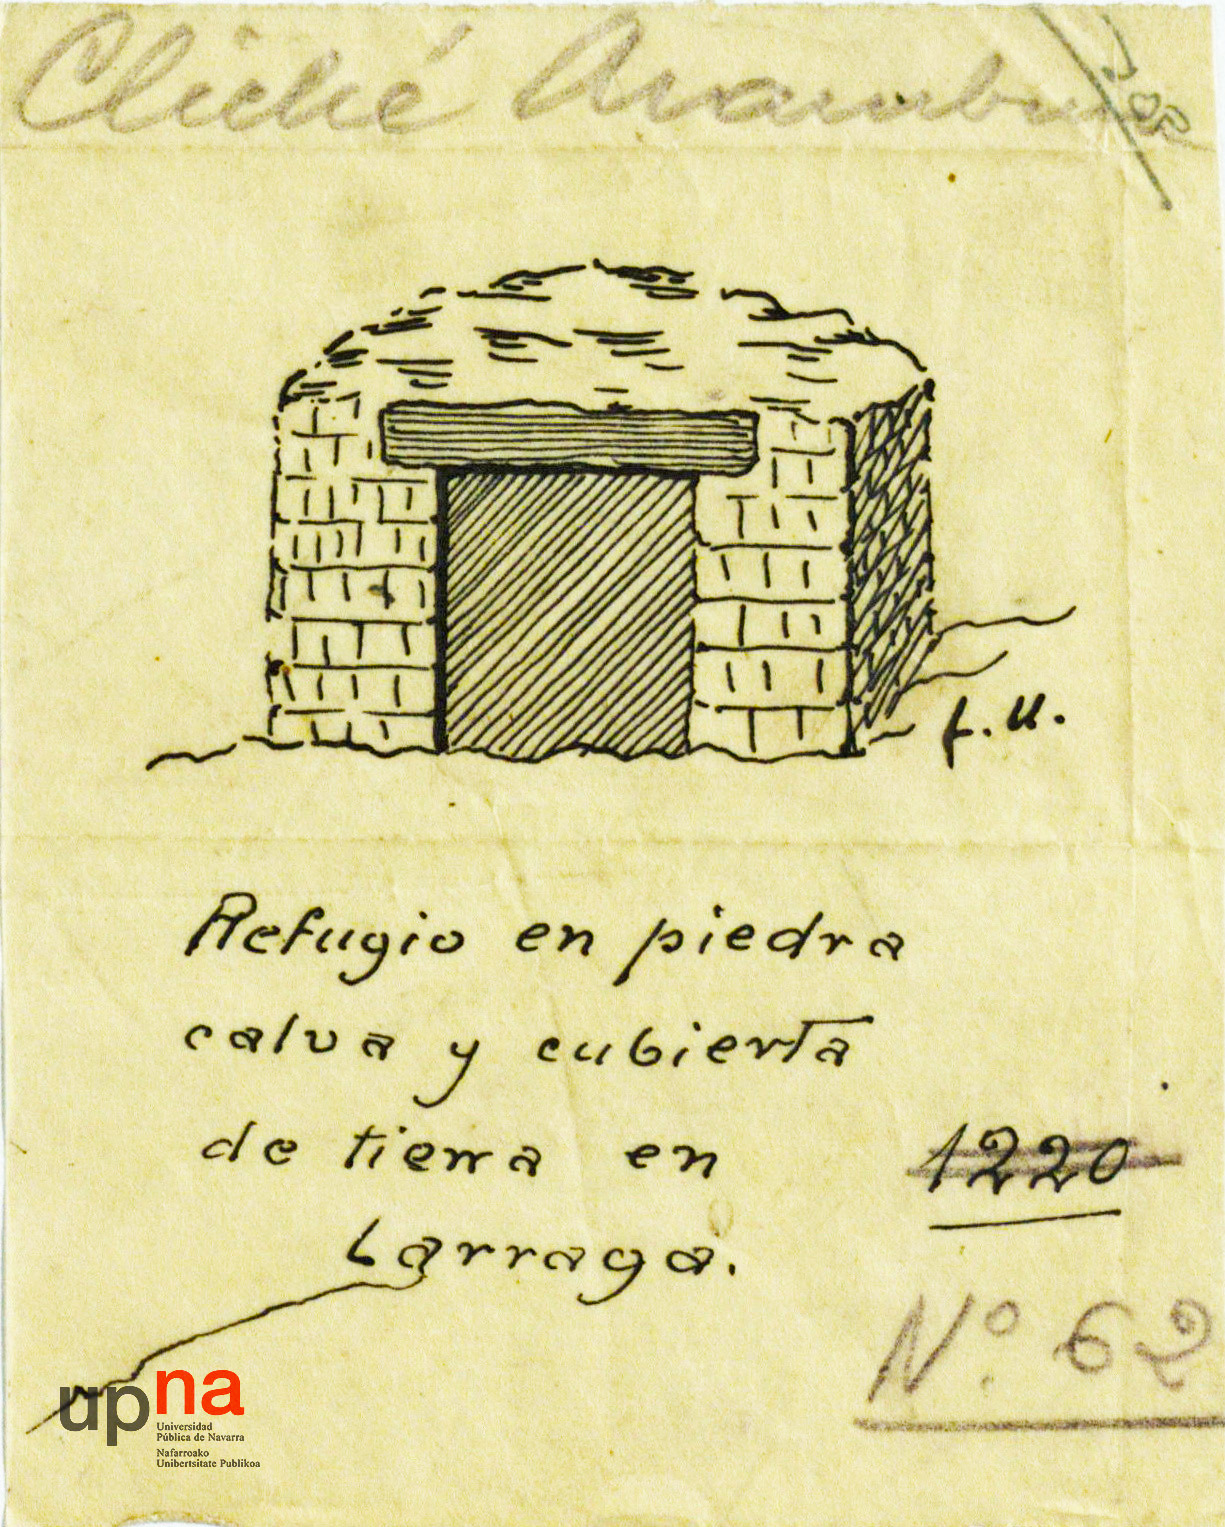 Cliché Aramburu
f. U.
Refugio en piedra
calva y cubierta
de tierra en
Larraga.
1220
Nº. 62
upna
Universidad
Pública de Navarra
Nafarroako
Unibertsitate Publikoa